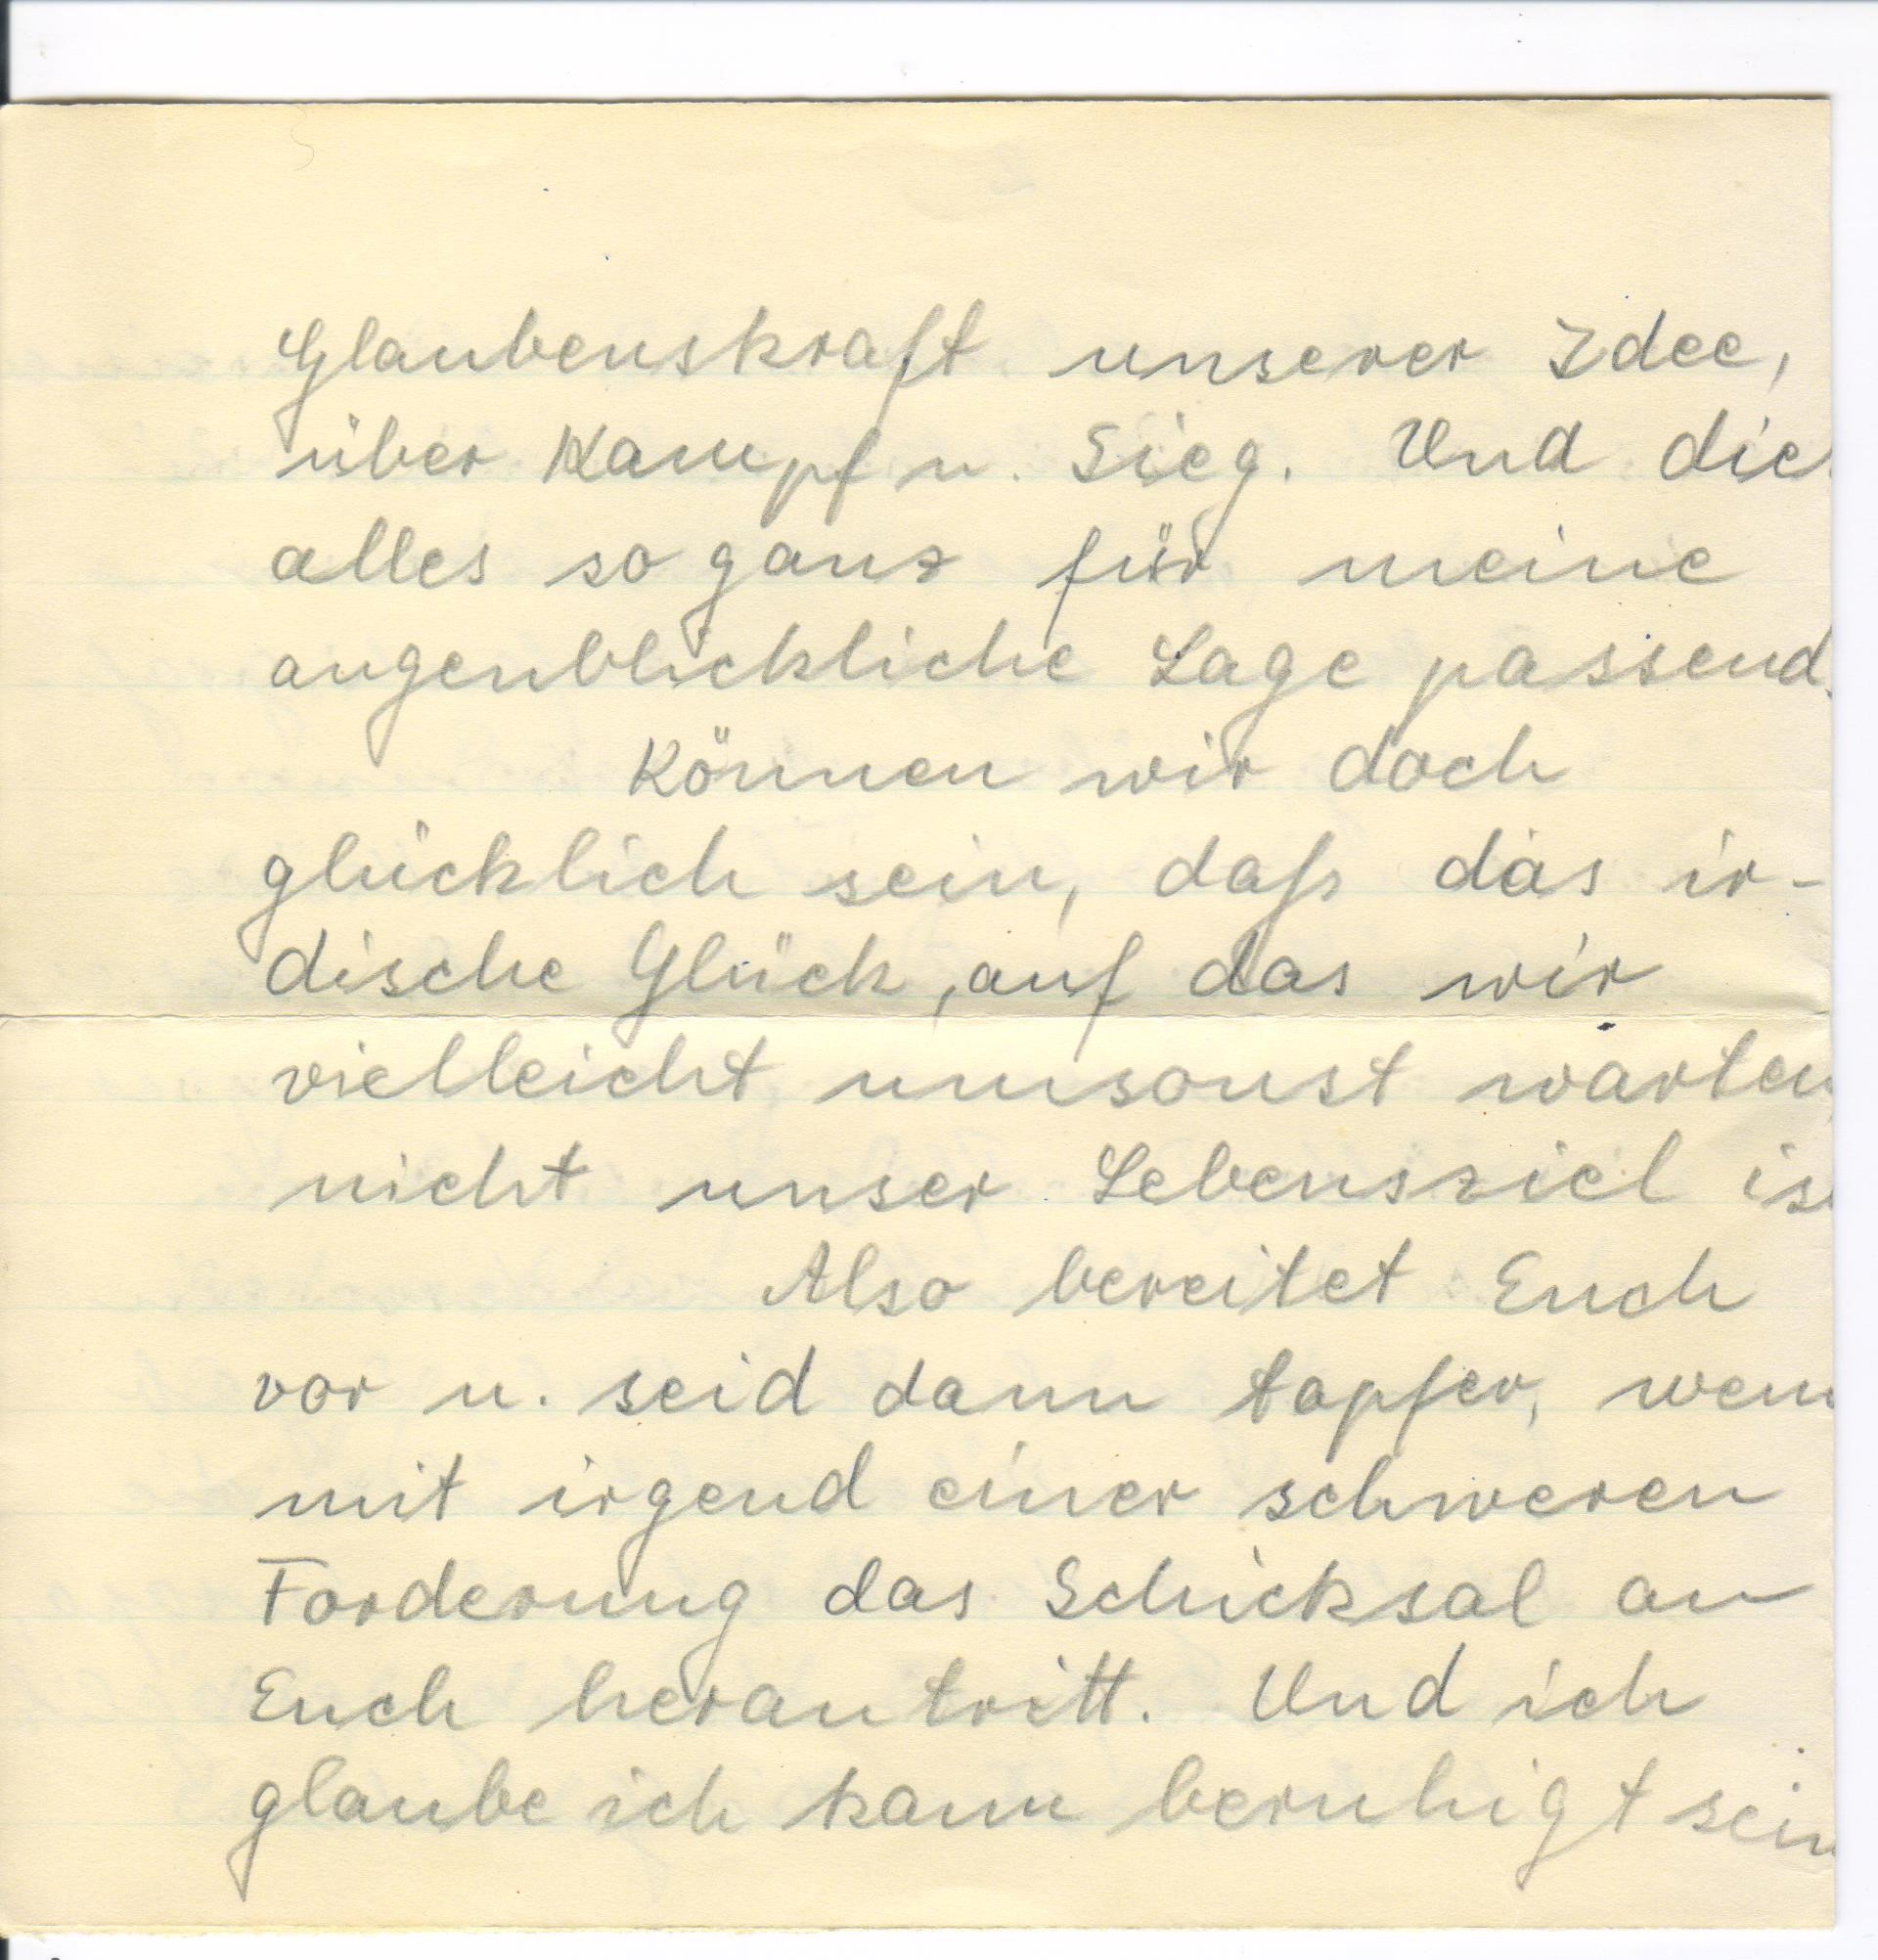 Glaubenskraft unserer Idee,
über Kampf u. Sieg. Und die
alles so ganz für meine
augenblickliche Lage passend.
Können wir doch
glücklich sein, daß das ir-
dische Glück, auf das wir
vielleicht umsonst warten
nicht unser Lebensziel ist
Also bereitet Euch
vor u. seid dann tapfer, wenn
mit irgend einer schweren
Forderung das Schicksal an
Euch herantritt. Und ich
glaube ich kann beruhigt sein